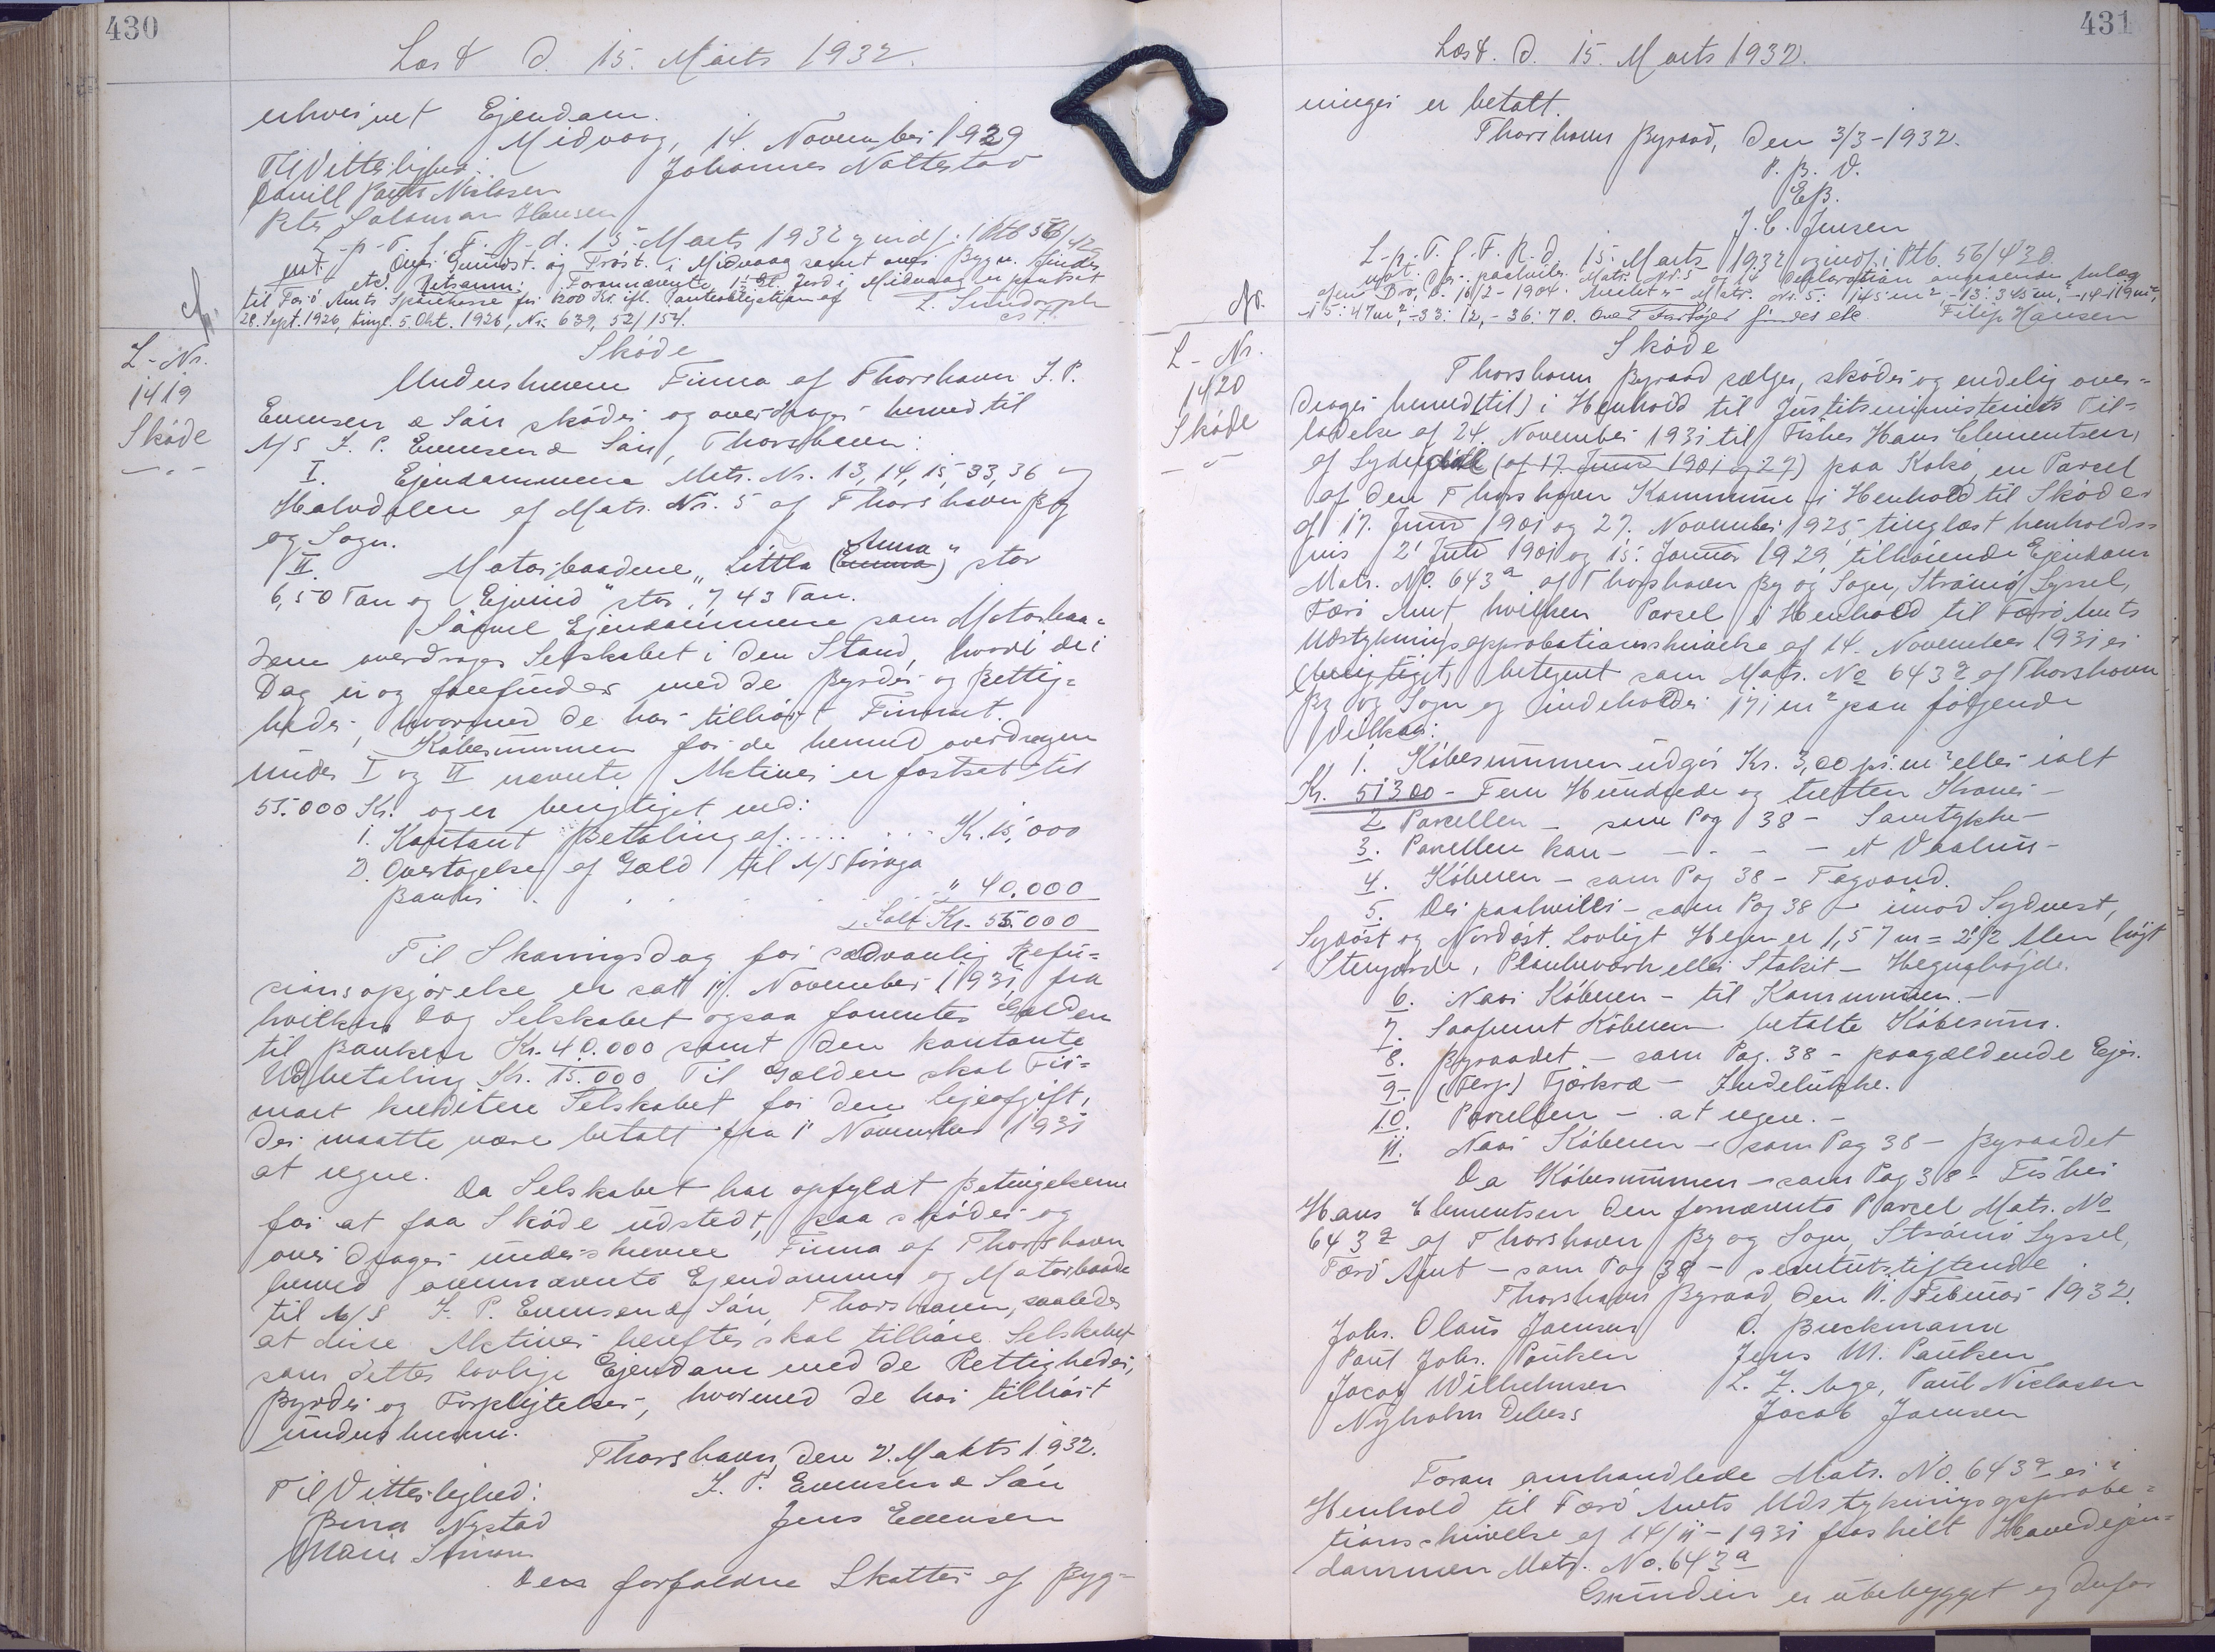 430
Læst d. 15. Marts 1932.
erhvervet Ejendom.
Midvaag, 14. November 1929
Til Vitterlighed: Johannes Nattestad
Poul Nielsen
Peter Salomon Hansen
L. p. T. f. F. R. d. 15. Marts 1932 og indf. i Ptb 56/42
Grundst. og Tróst. i Midvaag samt over Bygn. findes
etc. Retsanm: Forannævnte Jord i Midvaag er pantsat
til Færø Amts Sparekasse for 1200 Kr. ifl. Panteobligation af
28. Sept. 1926, tingl. 5. Okt. 1926, Nr. 639, 52/154.
L-Nr.
1419
Skøde
Skøde
Underskrevne Firma af Thorshavn J. P.
Evensen & Søn skøder og overdrager herved til
A/S J. P. Evensen & Søn, Thorshavn:
I. Ejendommene Matr. Nr. 13, 14, 15, 33, 36 og
Halvdelen af Matr. Nr. 5 af Thorshavn By
og Sogn.
II. Motorbaadene „Littla (Emma) Anna" stor
6,50 Ton og „Ejvind" stor 7,43 Ton.
Saavel Ejendommene som Motorbaa-
dene overdrages Selskabet i den Stand, hvori de i
Dag er og forefindes med de Byrder og Rettig-
heder, hvormed de har tilhørt Firmaet.
Købesummen for de herved overdragne
under I og II nævnte Aktiver er fastsat til
55.000 Kr. og er berigtiget ved:
1. Kontant Betaling af ..... Kr. 15,000
2. Overtagelse af Gæld til A/S Føroya
Banki " 40.000
Ialt Kr. 55.000
Til Skæringsdag for sædvanlig Refu-
sionsopgørelse er sat 1. November 1931, fra
hvilken Dag Selskabet ogsaa forrenter Gælden
til Banken Kr. 40.000 samt den kontante
Udbetaling Kr. 15.000. Til Gælden skal Fir-
maet kreditere Selskabet for den Lejeafgift,
der maatte være betalt fra 1. November 1931
at regne.
Da Selskabet har opfyldt Betingelserne
for at faa Skøde udstedt, saa skøder og
overdrager underskrevne Firma af Thorshavn
herved ovennævnte Ejendomme og Motorbaade
til A/S J. P. Evensen & Søn, Thorshavn, saaledes
at disse Aktiver herefter skal tilhøre Selskabet
som dettes lovlige Ejendom med de Rettigheder,
Byrder og Forpligtelser, hvormed de har tilhørt
underskrevne.
Thorshavn, den 2. Marts 1932.
Til Vitterlighed: J. P. Evensen & Søn
Nystad Jens Evensen
Marie
Den forfaldne Skatter af Byg-
431
Læst d. 15. Marts 1932.
ninger er betalt.
Thorshavn Byraad, den 3/3-1932.
P. B. V.
EB.
J. C. Jensen
L. p. T. f. F. R. d. 15. Marts 1932 og indf. i Ptb. 56/430.
paahviler Matr. Nr. 5 og 15 Deklaration angaaende Anlæg
af en Bro, d. 16/2-1904. Arealet er Matr. Nr. 5: 145 m², -13: 345 m², -14: 119 m²,
-15: 47 m², -33: 12, -36: 70. Over Fartøjer findes etc Filip Hansen
L-Nr.
1420
Skøde
Skøde
Thorshavn Byraad sælger, skøder og endelig over-
drager herved (til) i Henhold til Justitsministeriets Til-
ladelse af 24. November 1931 til Fisker Hans Clementsen,
af Syderdal (af 17. Juni 1901 og 27) paa Kolsø, en Parcel
af den Thorshavn Kommune i Henhold til Skøder
af 17. Juni 1901 og 27. November 1925, tinglæst henholds-
vis 2' Juli 1901 og 15. Januar 1929, tilhørende Ejendom
Matr. No. 643ª af Thorshavn By og Sogn, Strømø Syssel,
Færø Amt, hvilken Parcel i Henhold til Færø Amts
Udstykningsapprobationsskrivelse af 14. November 1931 er
(berigtiget) betegnet som Matr. No 643 af Thorshavn
By og Sogn og indeholder 171 m² paa følgende
Vilkaar:
1. Købesummen udgør Kr. 3,00 pr. m² eller ialt
Kr. 513,00 - Fem Hundrede og tretten Kroner -
2. Parcellen - som Pag 38 - Samtykke -
3. Parcellen kan - - - - et Vaahus -
4. Køberen - som Pag 38 - Tagvand.
5. Der paahviler - som Pag 38 - imod Sydvest,
Sydøst og Nordøst. Lovligt Hegn er 1,57 m = 2½ Alen højt
Stengærde, Plankeværk eller Stakit - Hegnshøjde.
6. Naar Køberen - til Kommunen. -
7. Saafremt Køberen betalte Købesum.
8. Byraadet - som Pag. 38 - paagældende Ejer.
9. (Ferj) Fjerkræ - Indelukke.
10. Parcellen - at regne. -
11. Naar Køberen - som Pag 38 - Byraadet
Da Købesummen - som Pag 38 - Fisker
Hans Clementsen den fornævnte Parcel Matr. No
643 af Thorshavn By og Sogn, Strømø Syssel,
Færø Amt - som Pag 38 - servitutstiftende
Thorshavn Byraad, den 11. Februar 1932.
Johs. Olaus Joensen O. Breckmann
Poul Johs. Poulsen Jens M. Poulsen
Jacob Wilhelmsen L. Z. Aage, Poul Niclasen
Nyholm Debess Jacob Joensen
Foran omhandlede Matr. No. 643 er i
Henhold til Færø Amts Udstykningsapproba-
tionsskrivelse af 14/11-1931 fraskilt Hovedejen-
dommen Matr. No. 643ª
Grunden er ubebygget og derfor